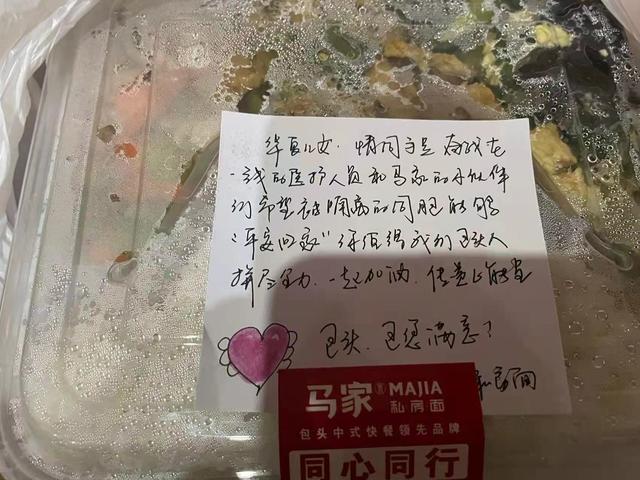 华夏儿女,情同手足 奋战在
一线的医护人员和马家的小伙伴
们希望被隔离的同胞能够
"平安回家"你值得我们包头人
拼尽全力,一起加油,传递正能量
包头,包您满意!
马家 MAJIA
私房面
包头中式快餐领先品牌
同心同行